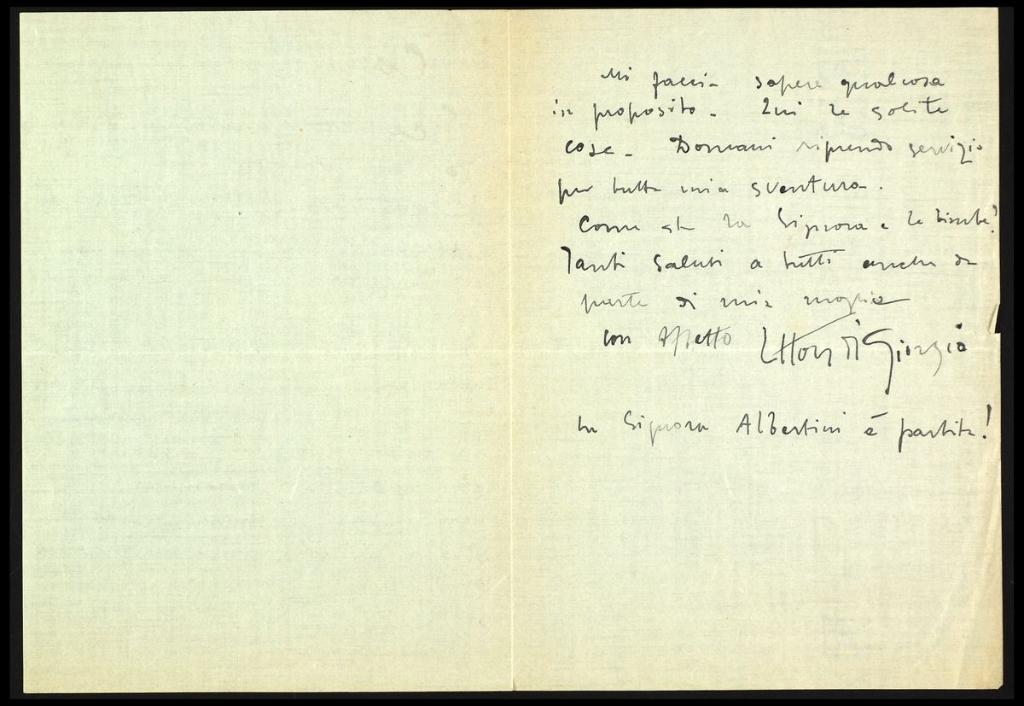 Mi faccia sapere qualcosa
in proposito. Qui le solite
cose. Domani riprendo servizio
per tutta mia sventura.
Come sta la Signora e le bimbe?
Tanti saluti a tutti anche da
parte di mia moglie
con affetto Ettore di Giorgio
La Signora Albertini é partita!